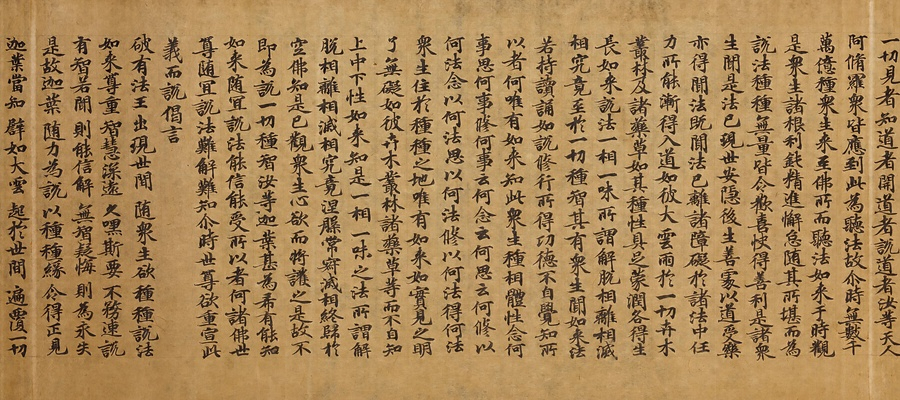 一切見者知道者開道者說道者汝等天人
阿脩羅衆皆應到此為聽法故尒時無數千
萬億種衆生来至佛所而聽法如来于時觀
是衆生諸根利鈍精進懈怠随其所堪而為
說法種種無量皆令歡喜快得善利是諸衆
生聞是法已現世安隱後生善處以道受樂
亦得聞法既聞法已離諸障礙於諸法中任
力所能漸得入道如彼大雲雨於一切卉木
叢林及諸藥草如其種性具足蒙潤各得生
長如来說法一相一味所謂解脫相離相滅
相究竟至於一切種智其有衆生聞如来法
若持讀誦如說修行所得功德不自覺知所
以者何唯有如来知此衆生種相體性念何
事思何事修何事云何念云何思云何修以
何法念以何法思以何法修以何法得何法
衆生住於種種之地唯有如来如實見之明
了無礙如彼卉木叢林諸藥草等而不自知
上中下性如来知是一相一味之法所謂解
脫相離相滅相究竟涅槃常寂滅相終歸於
空佛知是已觀衆生心欲而將護之是故不
即為說一切種智汝等迦葉甚為希有能知
如来随宜說法能信能受所以者何諸佛世
尊随宜說法難解難知尒時世尊欲重宣此
義而說偈言
破有法王 出現世間 随衆生欲 種種說法
如来尊重 智慧深遠 久嘿斯要 不務速說
有智若聞 則能信解 無智疑悔 則為永失
是故迦葉 随力為說 以種種緣 令得正見
迦葉當知 譬如大雲 起於世間 遍覆一切